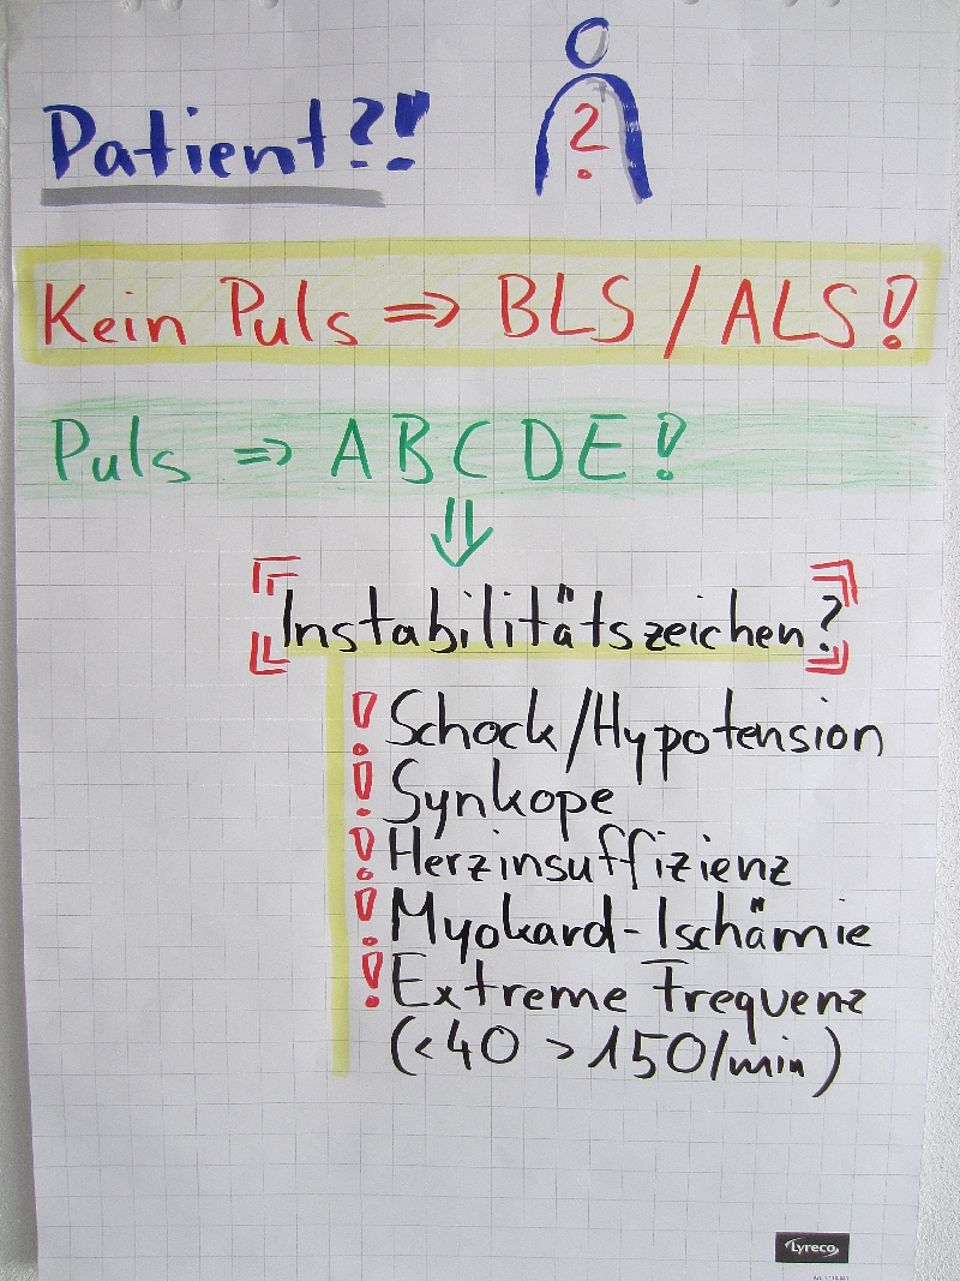 Patient?!
?
Kein Puls => BLS / ALS!
Puls => ABCDE!
Instabilitätszeichen?
! Schock/Hypotension
! Synkope
! Herzinsuffizienz
! Myokard-Ischämie
! Extreme Frequenz
(<40 >150/min)
Lyreco